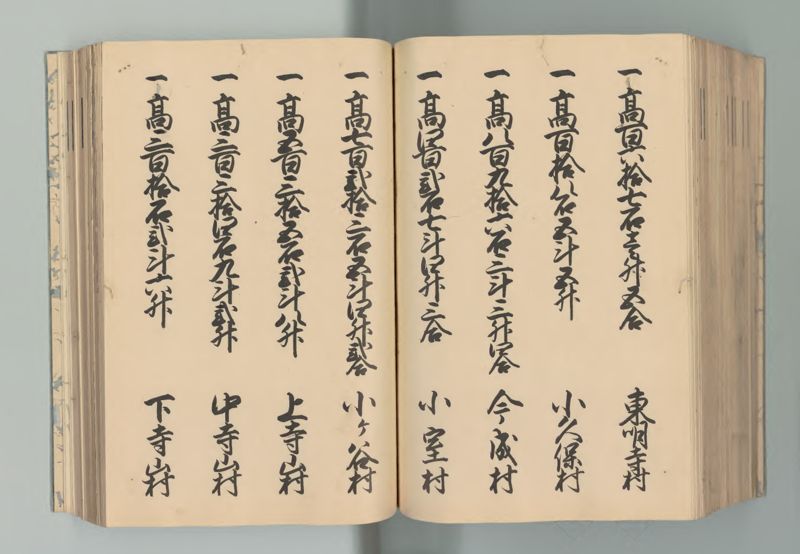 一高百六拾七石壱升五合 東明寺村
一高百拾八石五斗五升 小久保村
一高八百九拾六石三斗三升四合 今成村
一高四百弐石七斗四升三合 小室村
一高七百弐拾三石五斗四升弐合 小ケ谷村
一高五百三拾五石弐斗八升 上寺山村
一高三百三拾四石九斗弐升 中寺山村
一高三百拾石弐斗六升 下寺山村